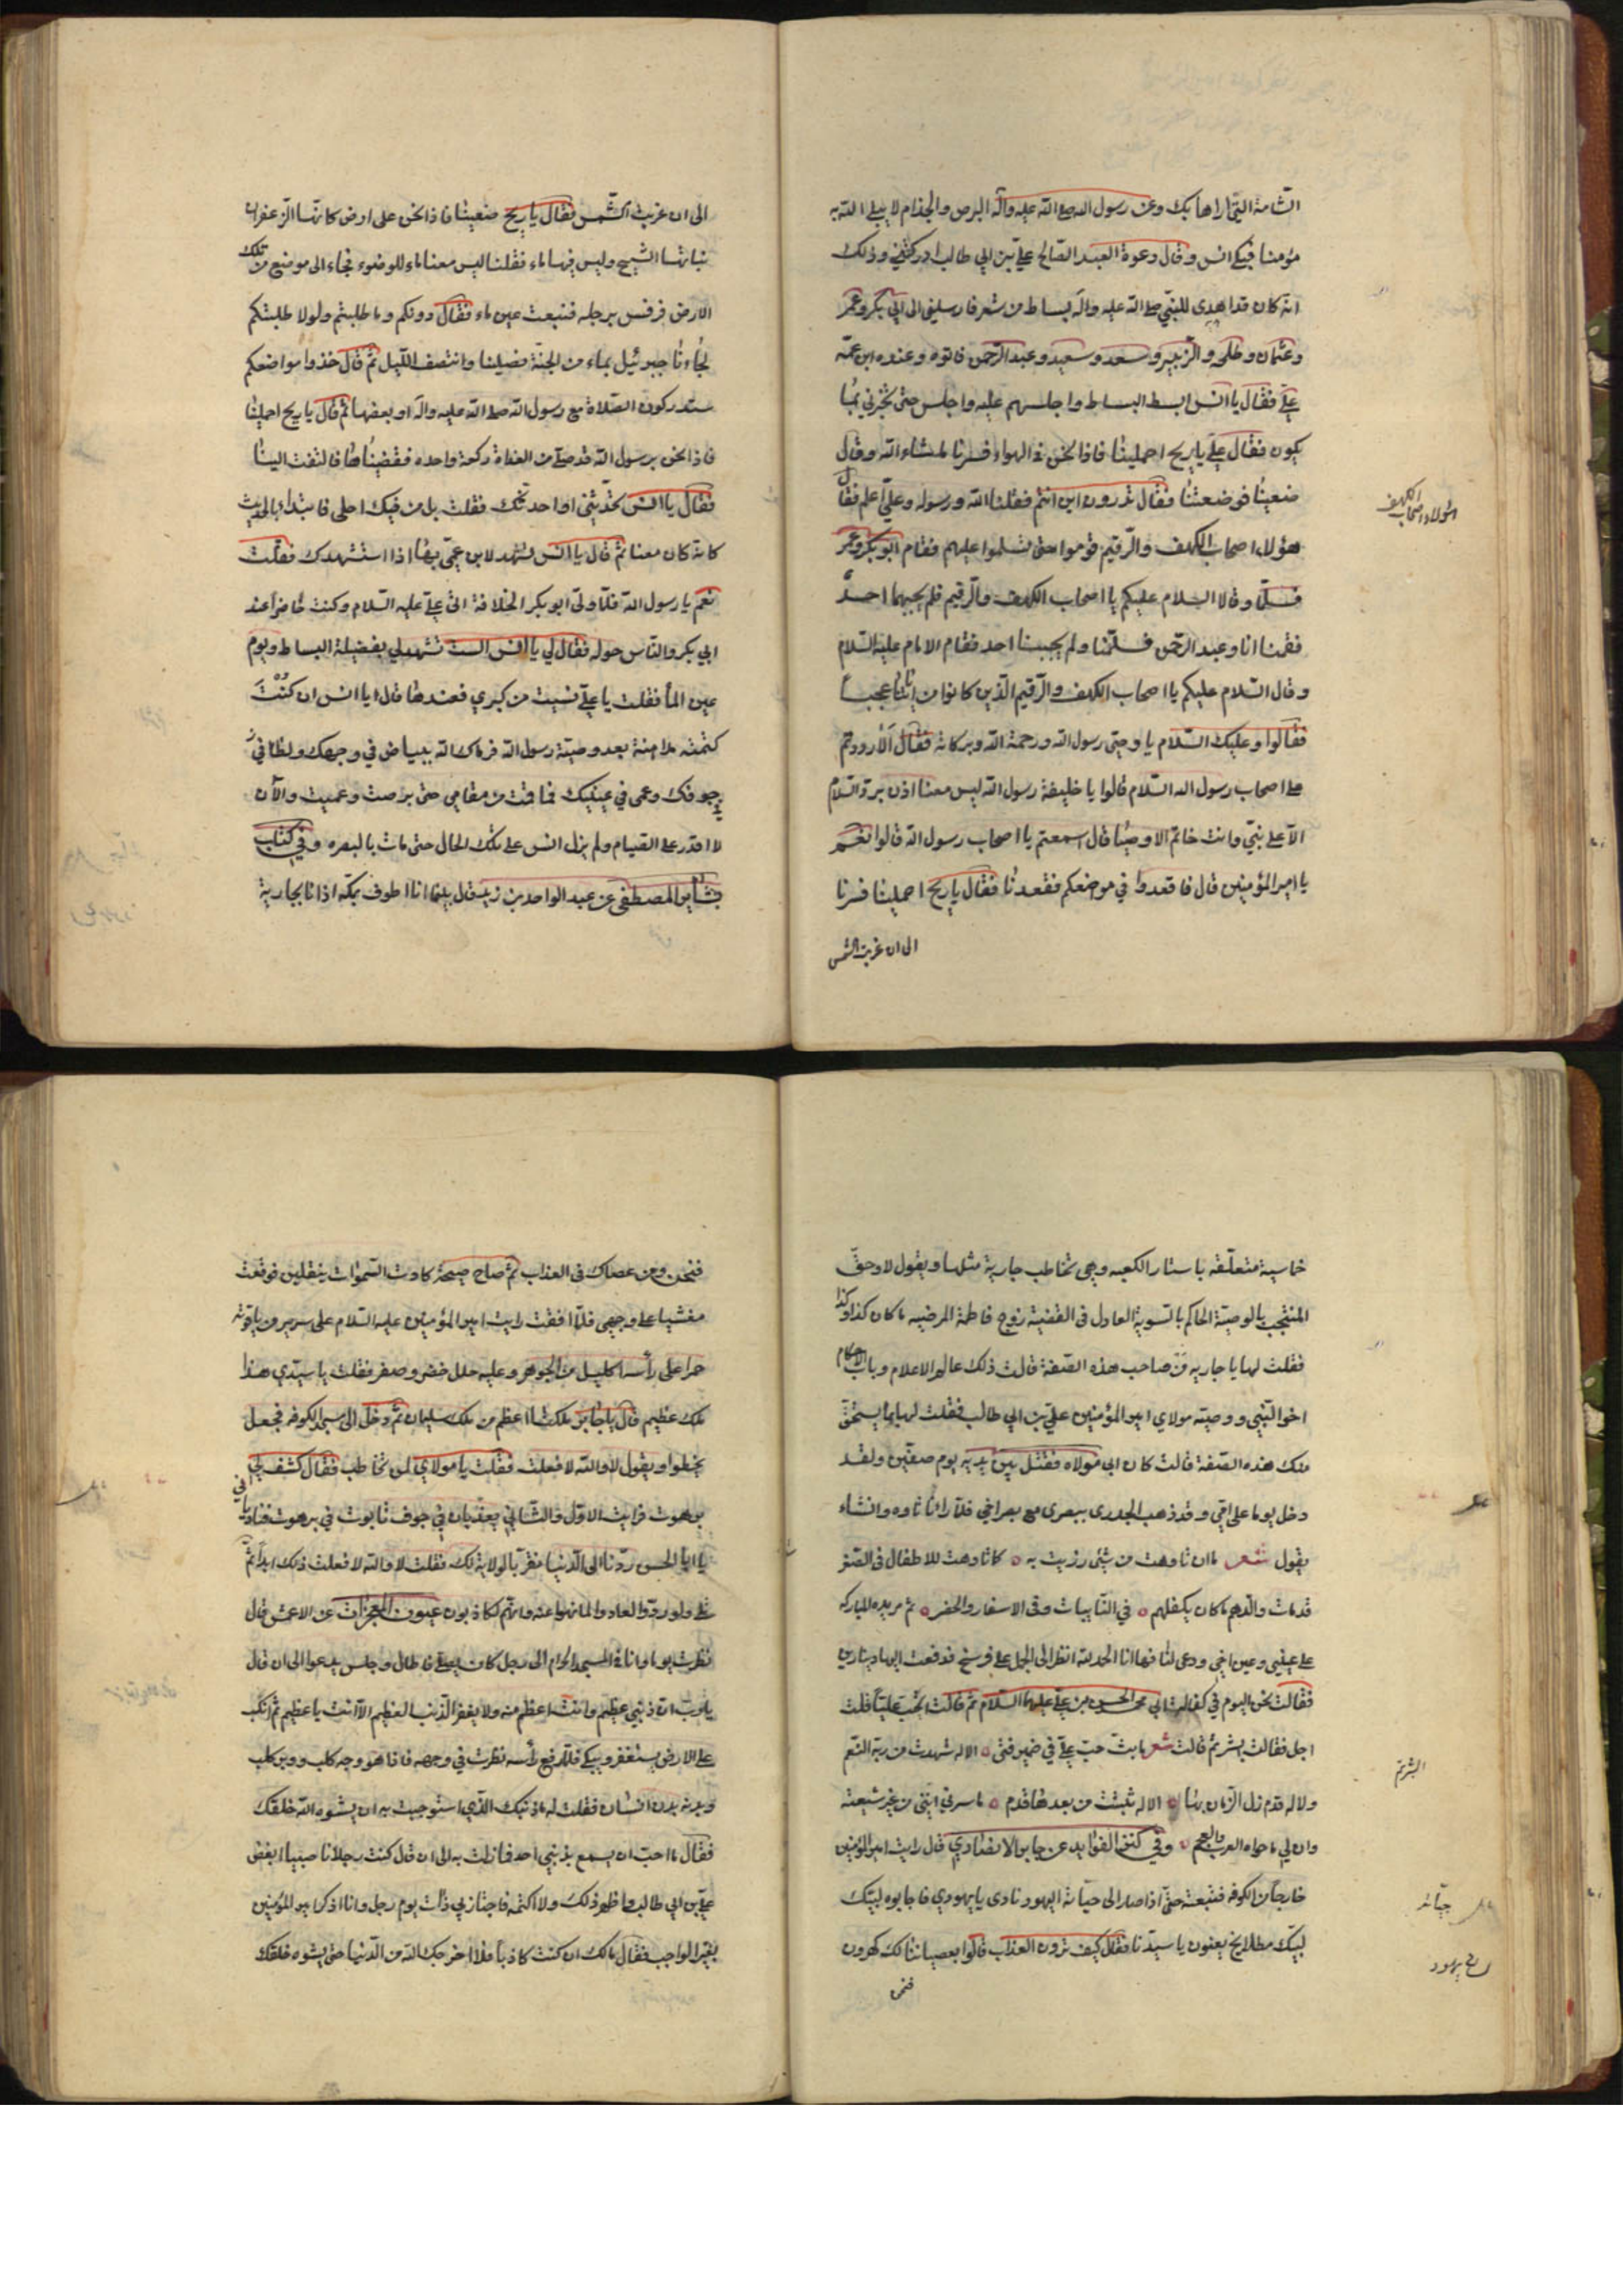 الشامة التي اراها بك وعن رسول الله صلى الله عليه وآله البرص والجذام لا يبلي الله به
مؤمنا فبكى انس وقال دعوة العبد الصالح علي بن ابي طالب ادركتني وذلك
انه كان قد اهدي للنبي صلى الله عليه وآله بساط من شعر فارسلني الى ابي بكر وعمر
وعثمان وطلحه والزبير وسعد وسعيد وعبد الرحمن فاتوه وعنده ابن عمه
علي فقال يا انس ابسط البساط واجلسهم عليه واجلس حتى تخبرني بما
يكون فقال علي يا ريح احملينا فاذا نحن في الهواء فسرنا ما شاء الله وقال
ضعينا فوضعتنا فقال تدرون اين انتم فقلنا الله ورسوله وعلي اعلم فقال
هؤلاء اصحاب الكهف والرقيم قوموا حتى تسلموا عليهم فقام ابو بكر وعمر
فسلما وقالا السلام عليكم يا اصحاب الكهف والرقيم فلم يجبهما احد
فقمنا انا وعبد الرحمن فسلمنا ولم يجبنا احد فقام الامام عليه السلام
وقال السلام عليكم يا اصحاب الكهف والرقيم الذين كانوا من اياتنا عجبا
فقالوا وعليك السلام يا وصي رسول الله ورحمة الله وبركاته فقال الا رددتم
على اصحاب رسول الله السلام قالوا يا خليفة رسول الله ليس معنا اذن برد السلام
الا على نبي وانت خاتم الاوصيا قال سمعتم يا اصحاب رسول الله قالوا نعم
يا امير المؤمنين قال فاقعدوا في موضعكم فقعدنا فقال يا ريح احملينا فسرنا
الى ان غربت الشمس
هؤلاء اصحاب الكهف
الى ان غربت الشمس فقال يا ريح ضعينا فاذا نحن على ارض كانها الزعفران
نباتها الشيح وليس فيها ماء فقلنا ليس معنا ماء للوضوء فجاء الى موضع من تلك
الارض فرفس برجله فنبعت عين ماء فقال دونكم وما طلبتم ولولا طلبتكم
لجاءنا جبرئيل بماء من الجنة فصلينا وانتصف الليل ثم قال خذوا مواضعكم
ستدركون الصلاة مع رسول الله صلى الله عليه وآله او بعضها ثم قال يا ريح احملينا
فاذا نحن برسول الله قد صلى من الغداة ركعة واحده فقضيناها فالتفت الينا
فقال يا انس تحدثني او احدثك فقلت بل من فيك احلى فابتدا بالحديث
كانه كان معنا ثم قال يا انس تشهد لابن عمي بها اذا استشهدك فقلت
نعم يا رسول الله فلما ولي ابو بكر الخلافة اتى علي عليه السلام وكنت حاضرا عند
ابي بكر والناس حوله فقال لي يا انس الست تشهد لي بفضيلة البساط ويوم
عين الماء فقلت يا علي نسيت من كبري فعندها قال يا انس ان كنت
كتمته مداهنة بعد وصية رسول الله فرماك الله ببياض في وجهك ولظا في
جوفك وعمى في عينيك فما قمت من مقامي حتى برصت وعميت والآن
لا اقدر على القيام ولم يزل انس على تلك الحال حتى مات بالبصره وفي كتاب
بشاير المصطفى عن عبد الواحد بن زيد قال بينما انا اطوف بمكه اذا انا بجارية
خماسية متعلقه باستار الكعبه وهي تخاطب جارية مثلها ويقول لا وحق
المنتجب بالوصية الحاكم بالسوية العادل في القضية زوج فاطمة المرضيه ما كان كذا وكذا
فقلت لها يا جاريه من صاحب هذه الصفة قالت ذلك عالم الاعلام وباب الاحكام
اخو النبي ووصيه مولاي امير المؤمنين علي بن ابي طالب فقلت لها بما يستحق
منك هذه الصفة قالت كان ابي مولاه فقتل بين يديه يوم صفين ولقد
دخل يوما على امي وقد ذهب الجدري ببصري مع بصر اخي فلما رانا تاوه وانشاء
يقول شعر ما ان تاوهت من شئ رزيت به ه كما تاوهت للاطفال في الصغر
قد مات والدهم من كان يكفلهم ه في النايبات وفي الاسفار والحضر ه ثم مر يده المباركه
على عيني وعين اخي ودعى لنا فها انا الحمد لله انظر الى الجمل على فرسخ فدفعت اليها دينارين
فقالت نحن اليوم في كفالة ابي محمد الحسن بن علي عليهما السلام ثم قالت اتحب عليا قلت
اجل فقالت ابشر ثم قالت شعر ما بث حب علي في ضمير فتى ه الا له شهدت من ربه النعم
ولا له قدم زل الزمان بها ه الا له ثبتت من بعدها قدم ه ما سرني انني من غير شيعته
وان لي ما حواه العرب والعجم ه وفي كنز الفوايد عن جابر الانصاري قال رايت امير المؤمنين
خارجا من الكوفه فتبعته حتى اذا صار الى جبانة اليهود نادى يا يهودي فاجابوه لبيك
لبيك مطلايخ يعنون يا سيدنا فقال كيف ترون العذاب قالوا بعصياننا لك كهرون
فنحن
جبانه
يهود
فنحن ومن عصاك في العذاب ثم صاح صيحة كادت السموات ينقلبن فوقعت
مغشيا على وجهي فلما افقت رايت امير المؤمنين عليه السلام على سرير من ياقوته
حمرا على رأسه اكليل من الجوهر وعليه حلل خضر وصفر فقلت يا سيدي هذا
ملك عظيم قال يا جابر ملكنا اعظم من ملك سليمان ثم دخل الى مسجد الكوفه فجعل
يخطوا ويقول لا والله لا فعلت فقلت يا مولاي لمن تخاطب فقال كشف لي
برهوت فرايت الاول والثاني يعذبان في جوف تابوت في برهوت فناديا
يا ابا الحسن ردنا الى الدنيا نقر بالولاية لك فقلت لا والله لا فعلت ذلك ابدا ثم
تلى ولو ردوا لعادوا لما نهوا عنه وانهم لكاذبون عيون المعجزات عن الاعمش قال
نظرت يوما وانا في المسجد الحرام الى رجل كان يصلي فاطال وجلس يدعوا الى ان قال
يا رب ان ذنبي عظيم وانت اعظم منه ولا يغفر الذنب العظيم الا انت يا عظيم ثم انكب
على الارض يستغفر ويبكي فلما رفع رأسه نظرت في وجهه فاذا هو وجه كلب ووبر كلب
وبدنه بدن انسان فقلت له ما ذنبك الذي استوجبت به ان يشوه الله خلقك
فقال ما احب ان يسمع بذنبي احد فما زلت به الى ان قال كنت رجلا ناصبيا ابغض
علي بن ابي طالب واظهر ذلك ولا اكتمه فاجتاز بي ذات يوم رجل وانا اذكر امير المؤمنين
بغير الواجب فقال مالك ان كنت كاذبا فلا اخرجك الله من الدنيا حتى يشوه خلقك